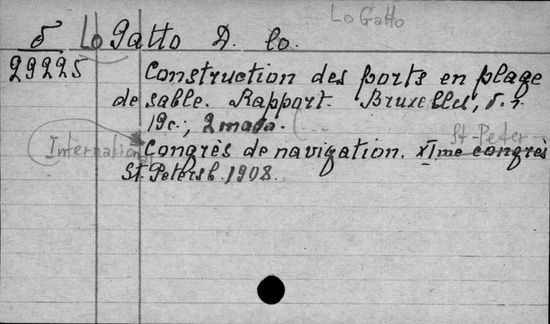 Lo Gatto
δ Lo Gatto D. lo.
29225
Construction des ports en plage
de sable. Rapport. Bruxelles, s.
19c.;
St-Peter
International Congrès de navigation. XIme congrès
St. Petersb. 1908.